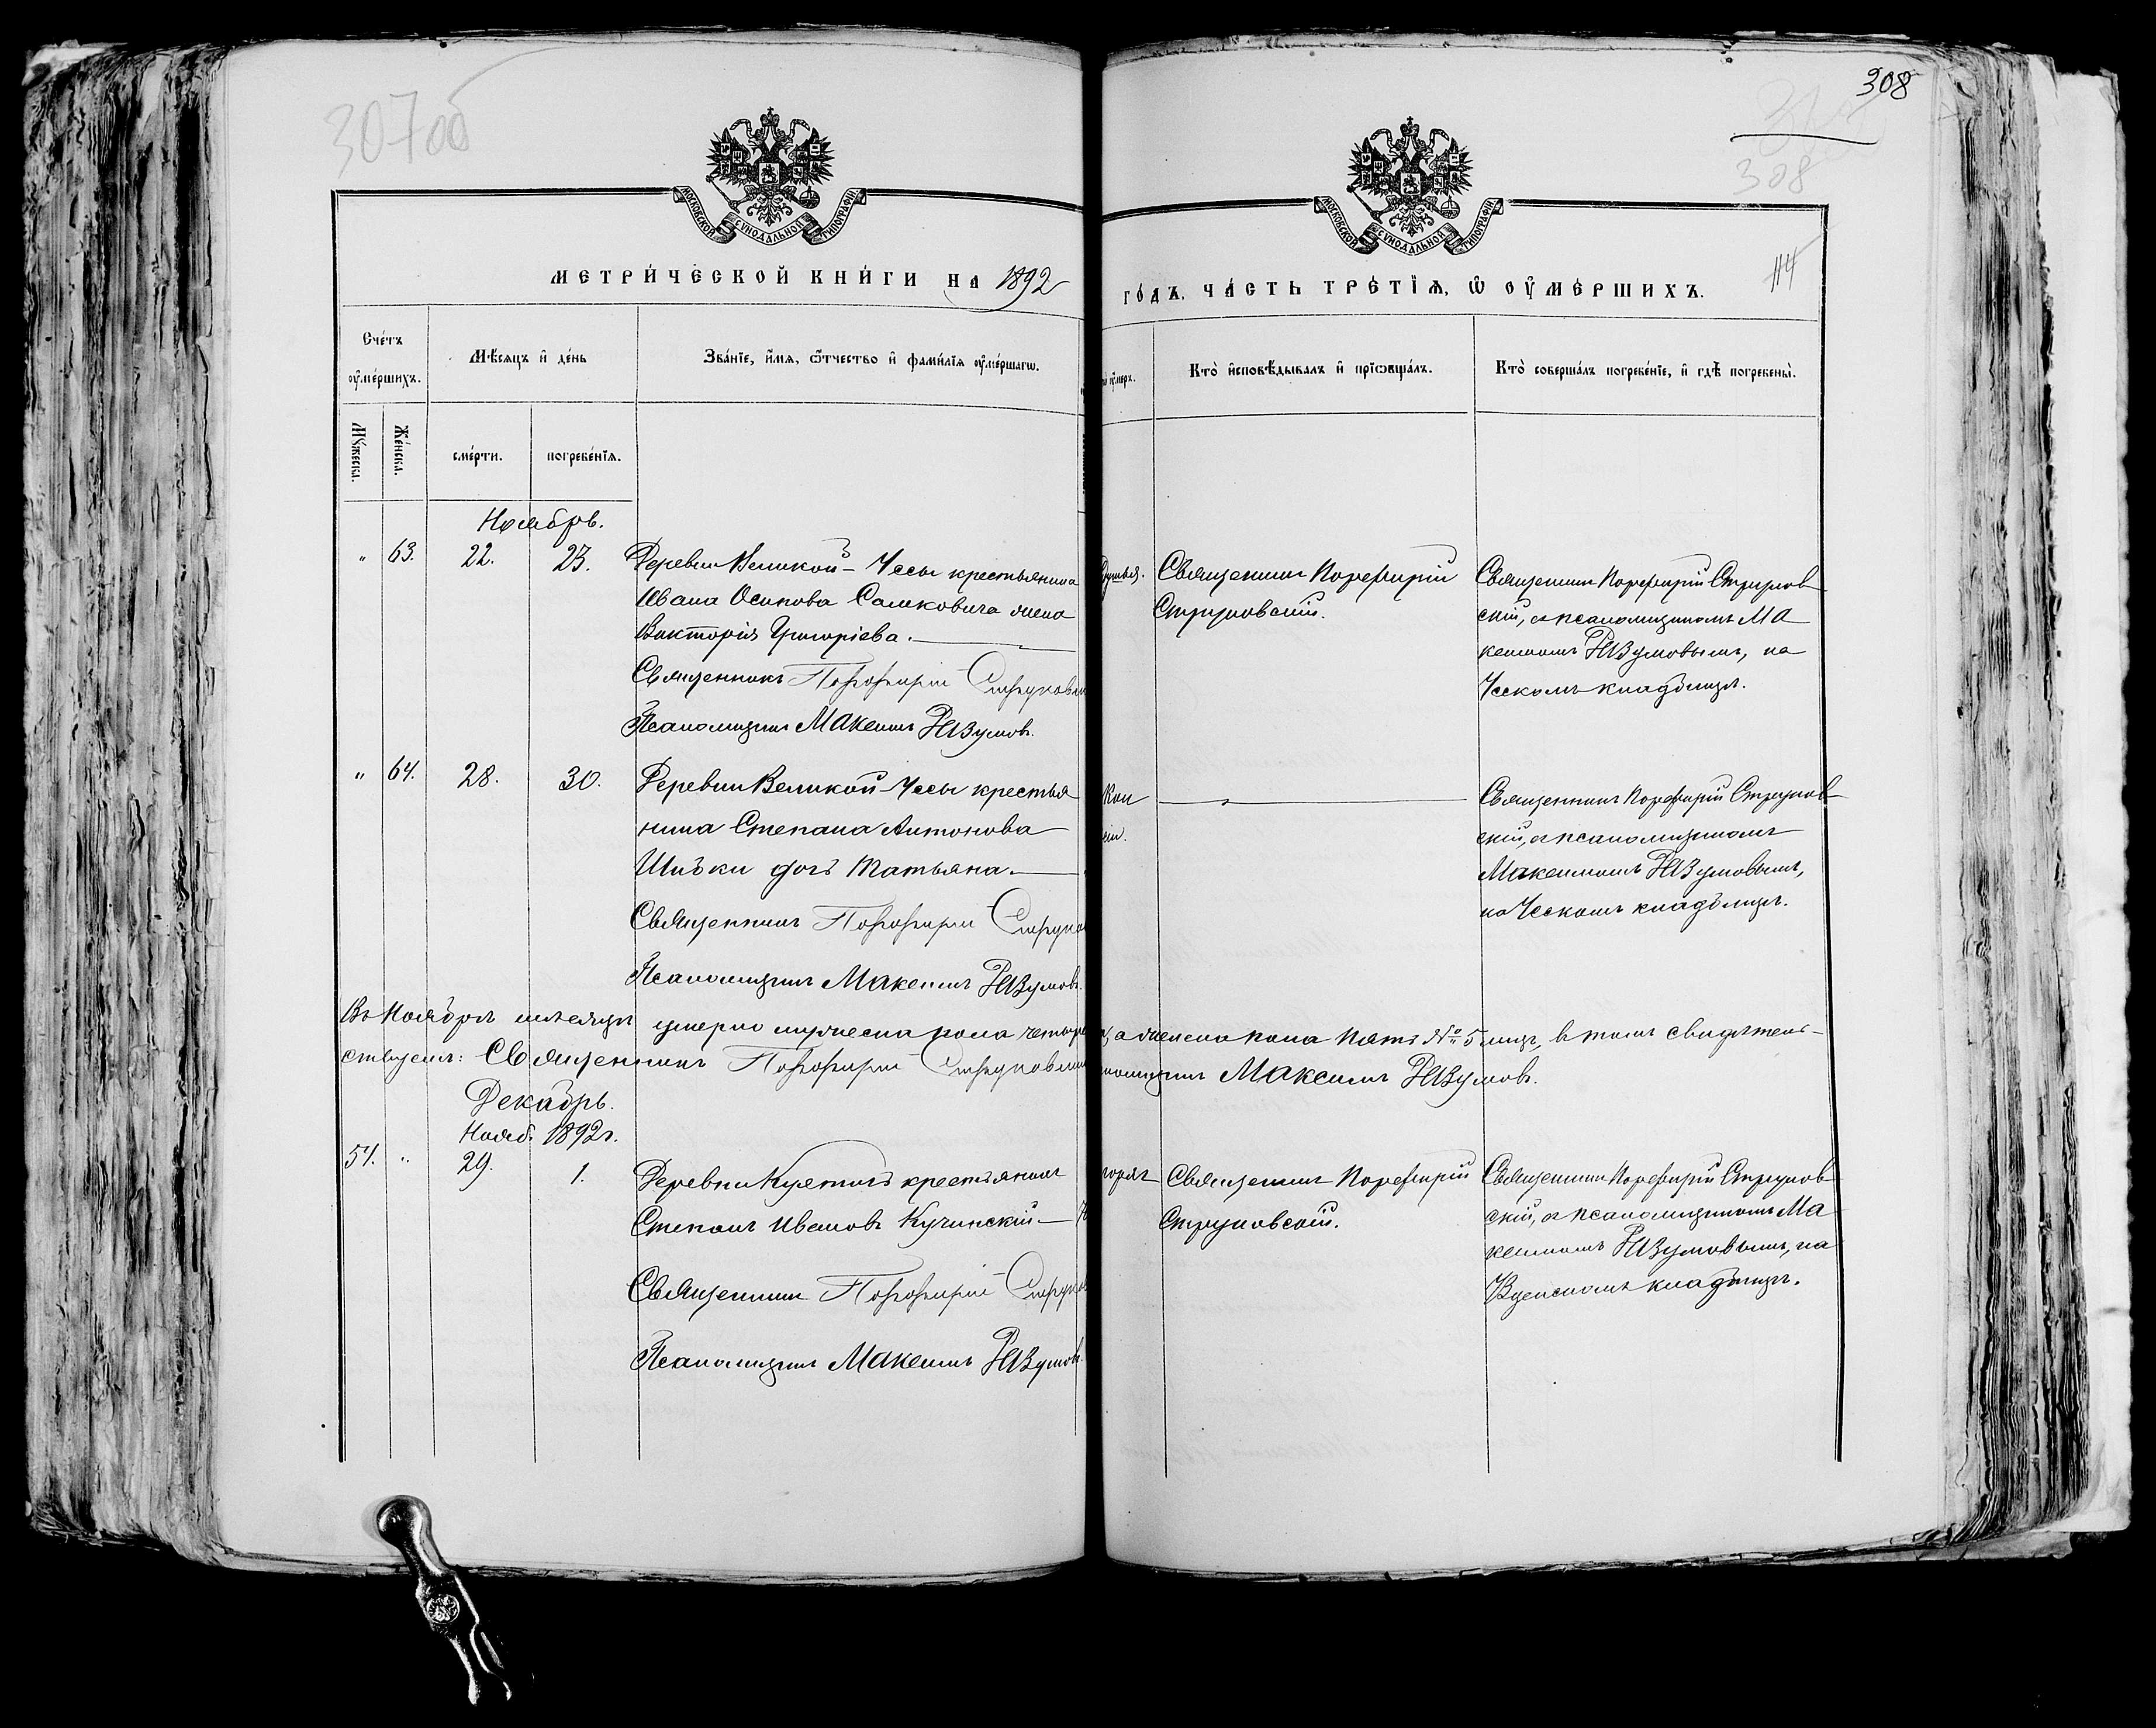 307об
308
308
114
МОСКОВСКОЙ СѴНОДАЛЬНОЙ ТИПОГРАФІИ
МОСКОВСКОЙ СѴНОДАЛЬНОЙ ТИПОГРАФІИ
МЕТРИ́ЧЕСКОЙ КНИ́ГИ НА 1892
ГО́ДЪ, ЧА́СТЬ ТРЕ́ТІѦ, Ѡ ОУ҆МЕ́РШИХЪ.
Сче́тъ оу҆ме́ршихъ.
Мѣ́сѧцъ и҆ де́нь
Зва́нїе, и҆́мѧ, ѻ҆́тчество и҆ фами́лїѧ оу҆ме́ршагѡ.
оу҆́меръ.
Кто̀ и҆сповѣ́дывалъ и҆ прїѡбща́лъ.
Кто̀ соверша́лъ погребе́нїе, и҆ гдѣ̀ погребены̀.
Мꙋ́жеска.
Же́нска.
сме́рти.
погребе́нїѧ.
Ноябрь.
" 63. 22. 23.
Деревни Великой-Чесы крестьянина
Ивана Осипова Сашковича жена
Викторія Григоріева.
Священникъ Порфирій Струковскі
Псаломщикъ Максимъ Разумовъ.
Священникъ Порфирій
Струковскій.
Священникъ Порфирій Струков
скій, съ псаломщикомъ Ма
ксимомъ Разумовымъ, на
Ческомъ кладбищѣ.
" 64. 28. 30.
Деревни Великой-Чесы крестья
нина Степана Антонова
дочь Татьяна.
Священникъ Порфирій Струко
Псаломщикъ Максимъ Разумовъ.
Священникъ Порфирій Струков
скій, съ псаломщикомъ
Максимомъ Разумовымъ,
на Ческомъ кладбищѣ.
Въ Ноябрѣ мѣсяцѣ умерло мужеска пола четыре, а женска пола пять № 5 лицъ, въ томъ свидѣтель-
ствуемъ: Священникъ Порфирій Струковскій
ломщикъ Максимъ Разумовъ.
Декабрь.
Нояб. 1892г.
54. " 29. 1.
Деревни крестьянинъ
Степанъ Ивановъ Кучинскій
Священникъ Порфирій Струко
Псаломщикъ Максимъ Разумовъ.
горяч
Священникъ Порфирій
Струковскій.
Священникъ Порфирій Струков
скій, съ псаломщикомъ Ма
ксимомъ Разумовымъ, на
кладбищѣ.